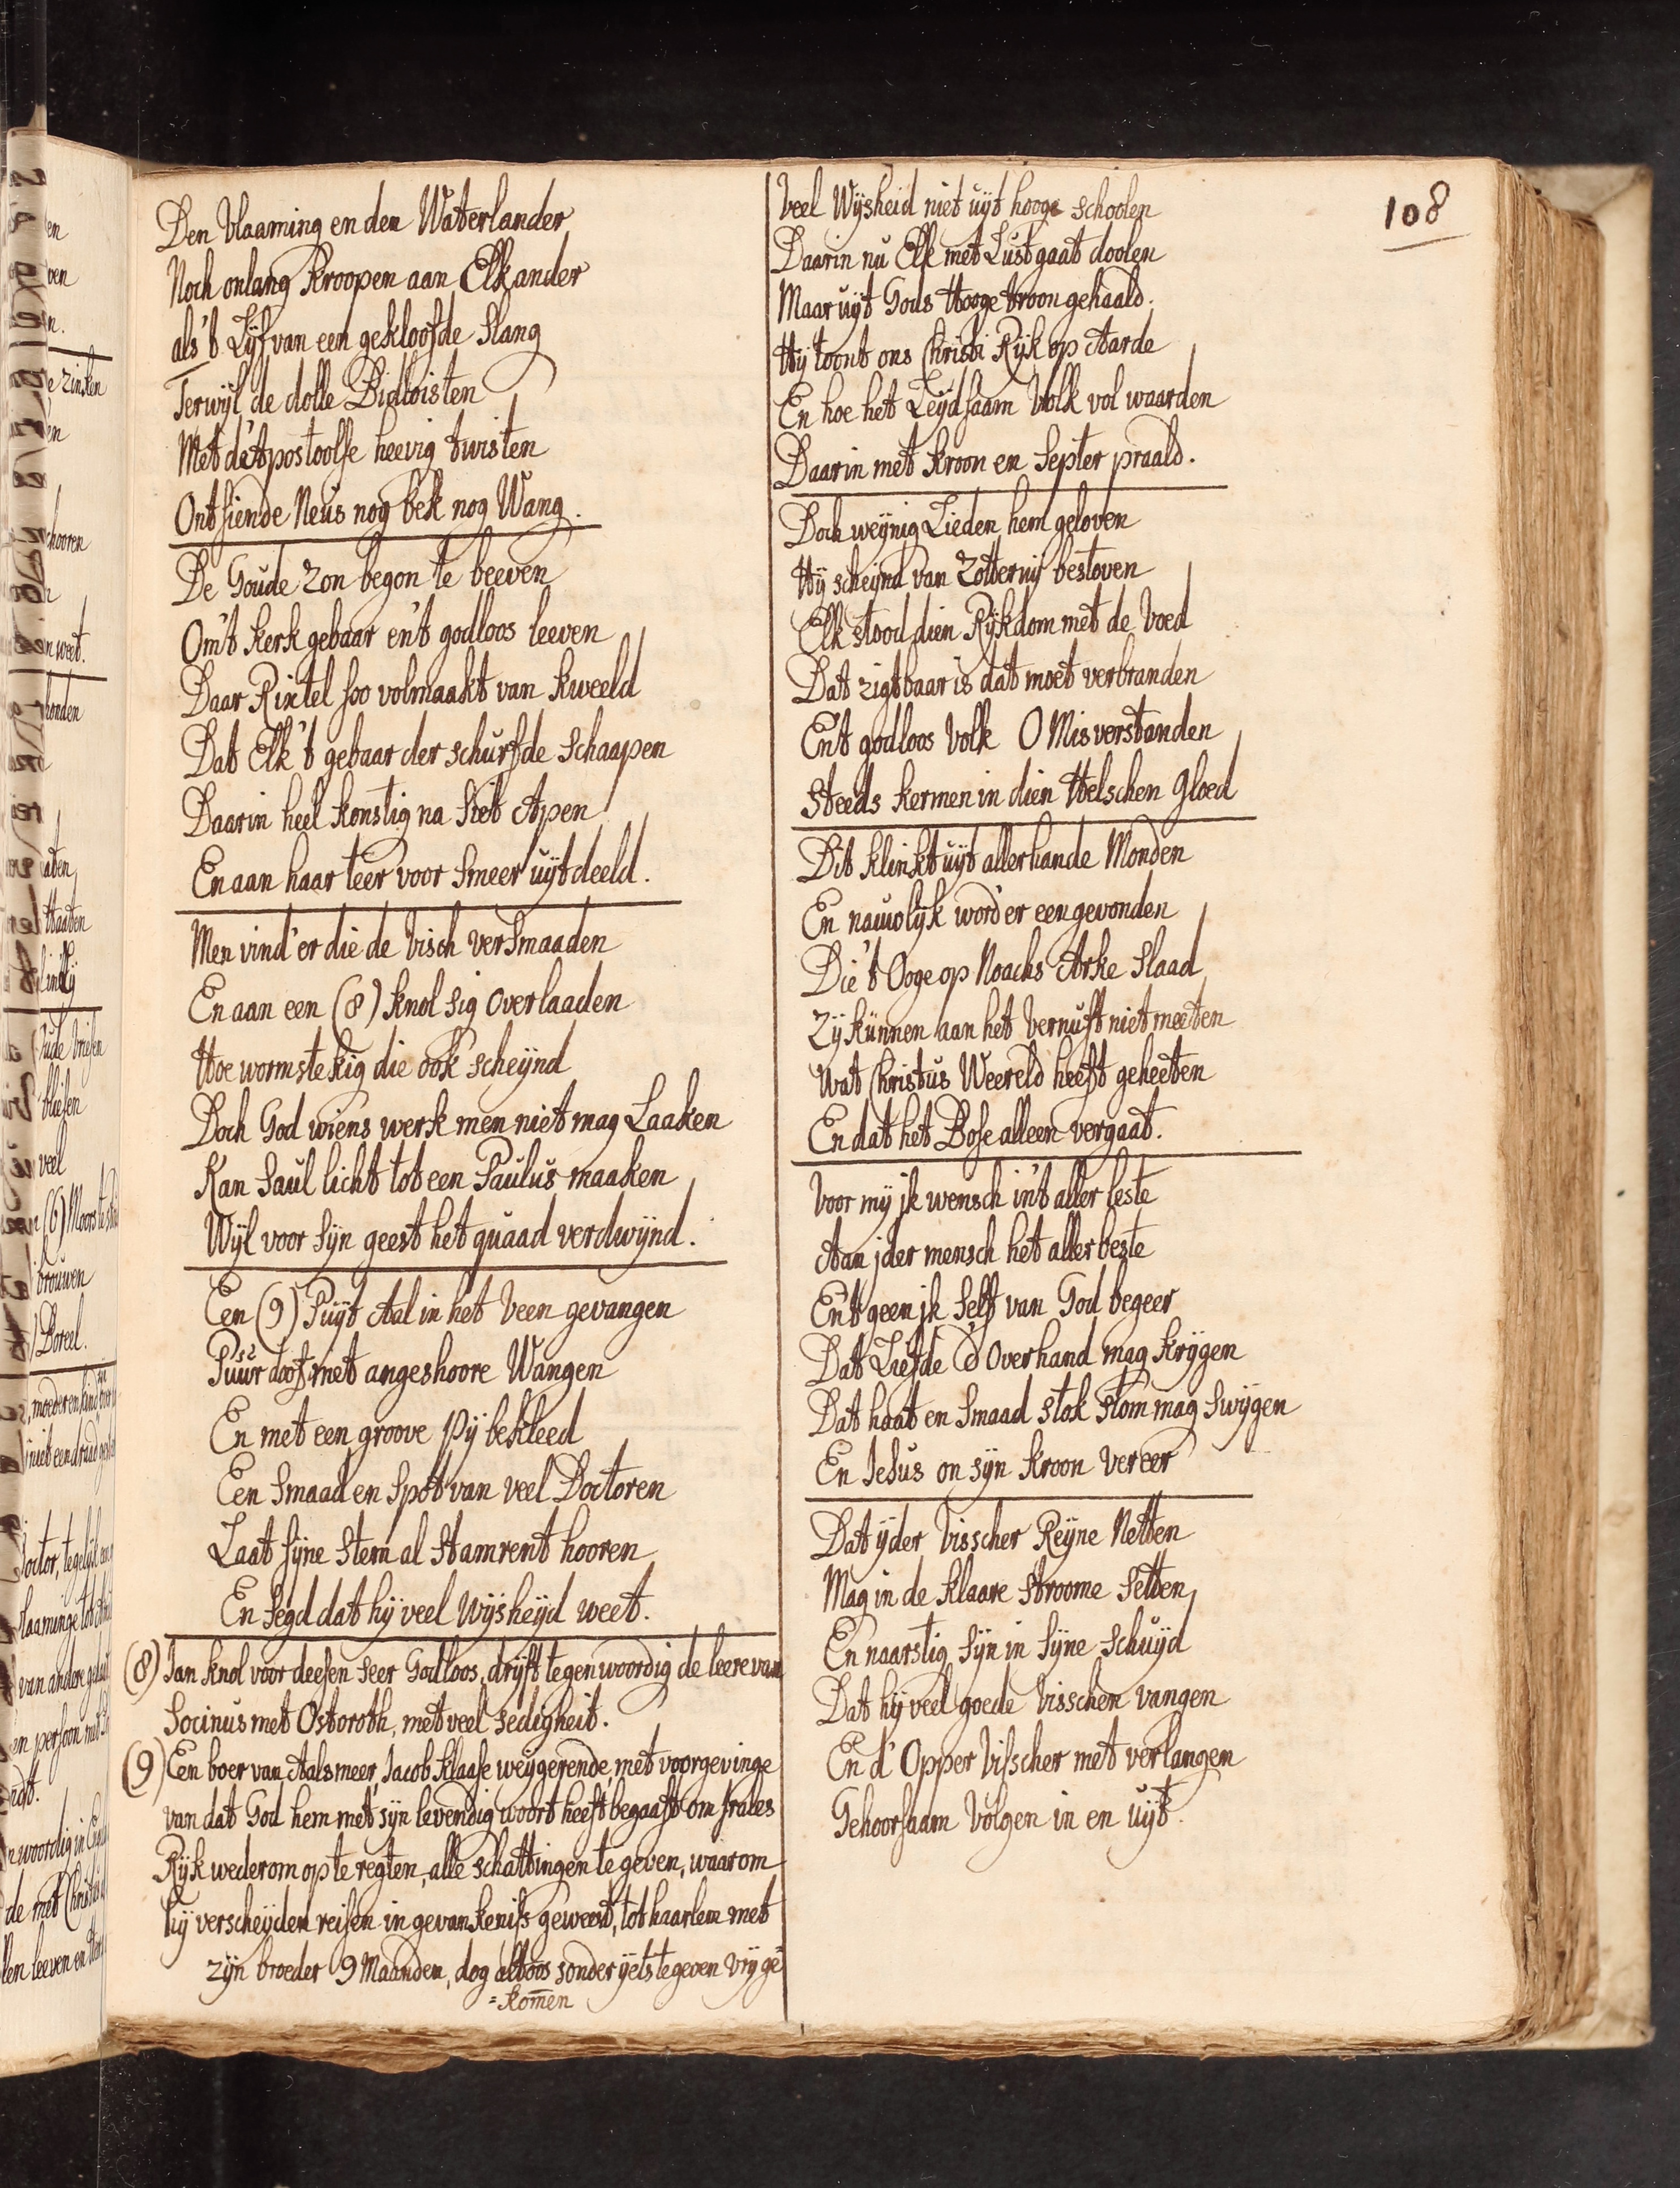 108
Den Vlaaming en den Waterlander
Noch onlang kroopen aan Elkander
als't Lyf van een gekloofde Slang
Terwijl de dolle Bidloisten
Met d'Apostoolse heevig twisten
Ontsiende Neus nog bek nog Wang.
De Goude zon begon te beeven
Om't kerk gebaar en't godloos leeven
Daar Rixtel soo volmaakt van kweeld
Dat Elk 't gebaar der schurfde Schaapen
Daarin heel konstig na Siet Apen
En aan haar teer voor Smeer uijtdeeld.
Men vind'er die de Visch versmaaden
En aan een (8) knol sig overlaaden
Hoe wormstekig die ook scheijnd
Doch God wiens werk men niet mag Laaken
Kan Saul licht tot een Paulus maaken
Wijl voor Sijn geest het quaad verdwijnd.
Een (9) Puijt Aal in het Veen gevangen
Puur doof met angeshoore Wangen
En met een groove Pij bekleed
Een Smaad en Spot van veel Doctoren
Laat sijne Stem al Stamrent hooren
En Segd dat hij veel Wijsheijd weet.
(8) Jan knol voor deesen seer Godloos, drijft tegenwoordig de leere van
Socinus met Ostoroth, met veel Sedigheit.
(9) Een boer van Aalsmeer, Jacob Klaase weijgerende, met voorgevinge
van dat God hem met sijn levendig woort heeft begaaft om Israles
Rijk wederom op te regten, alle schattingen te geven, waarom
hij verscheijden reisen in gevankenis geweest, tot haarlem met
zijn broeder 9 Maanden, dog altoos sonder ijets te geven vrij ge
=komen
Veel Wijsheid niet uijt hooge schoolen
Daarin nu Elk met Lust gaat doolen
Maar uijt Gods Hooge troon gehaald.
Hij toont ons Christi Rijk op Aarde
En hoe het Leijdsaam Volk vol waarden
Daarin met kroon en Septer praald.
Doch weijnig Lieden hem geloven
Hij scheijnd van Zotternij bestoven
Elk stood dien Rijkdom met de Voed
Dat zigtbaar is dat moet verbranden
En't godloos Volk O Misverstanden
Steeds kermen in dien Helschen gloed
Dit klinkt uijt allerhande Monden
En nauwlijk word'er een gevonden
Die't Ooge op Noachs Arke Slaad
Zij kunnen aan het Vernuft niet meeten
Wat Christus Weereld heeft geheeten
En dat het Bose alleen vergaat.
Voor mij jk wensch in't aller leste
Aan jder mensch het aller beste
En't geen jk Self van God begeer
Dat Liefde d Overhand mag krijgen
Dat haat en Smaad Stok Stom mag Swijgen
En Jesus on sijn kroon vereer
Dat ijder Visscher Reijne Netten
Mag in de klaare Stroome Setten
En naarstig Sijn in Sijne Schuijd
Dat hij veel goede Visschen vangen
En d' Opper Visscher met verlangen
Gehoorsaam Volgen in en uijt.